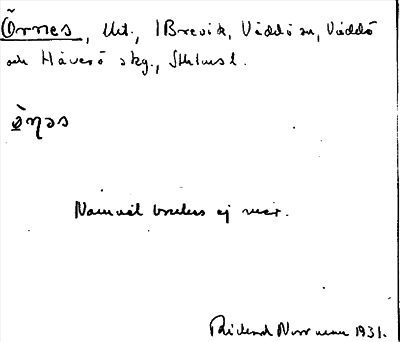 Örnes, Utt., 1 Brevik, Väddö sn, Väddö
och Häverö skg., Sthlms l.
ö̀ŋəs
Namnet brukas ej mer.
Rickard Norrman 1931.